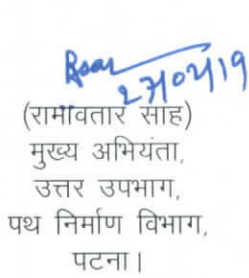 27/02/19
(रामावतार साह)
मुख्य अभियंता,
उत्तर उपभाग,
पथ निर्माण विभाग,
पटना।